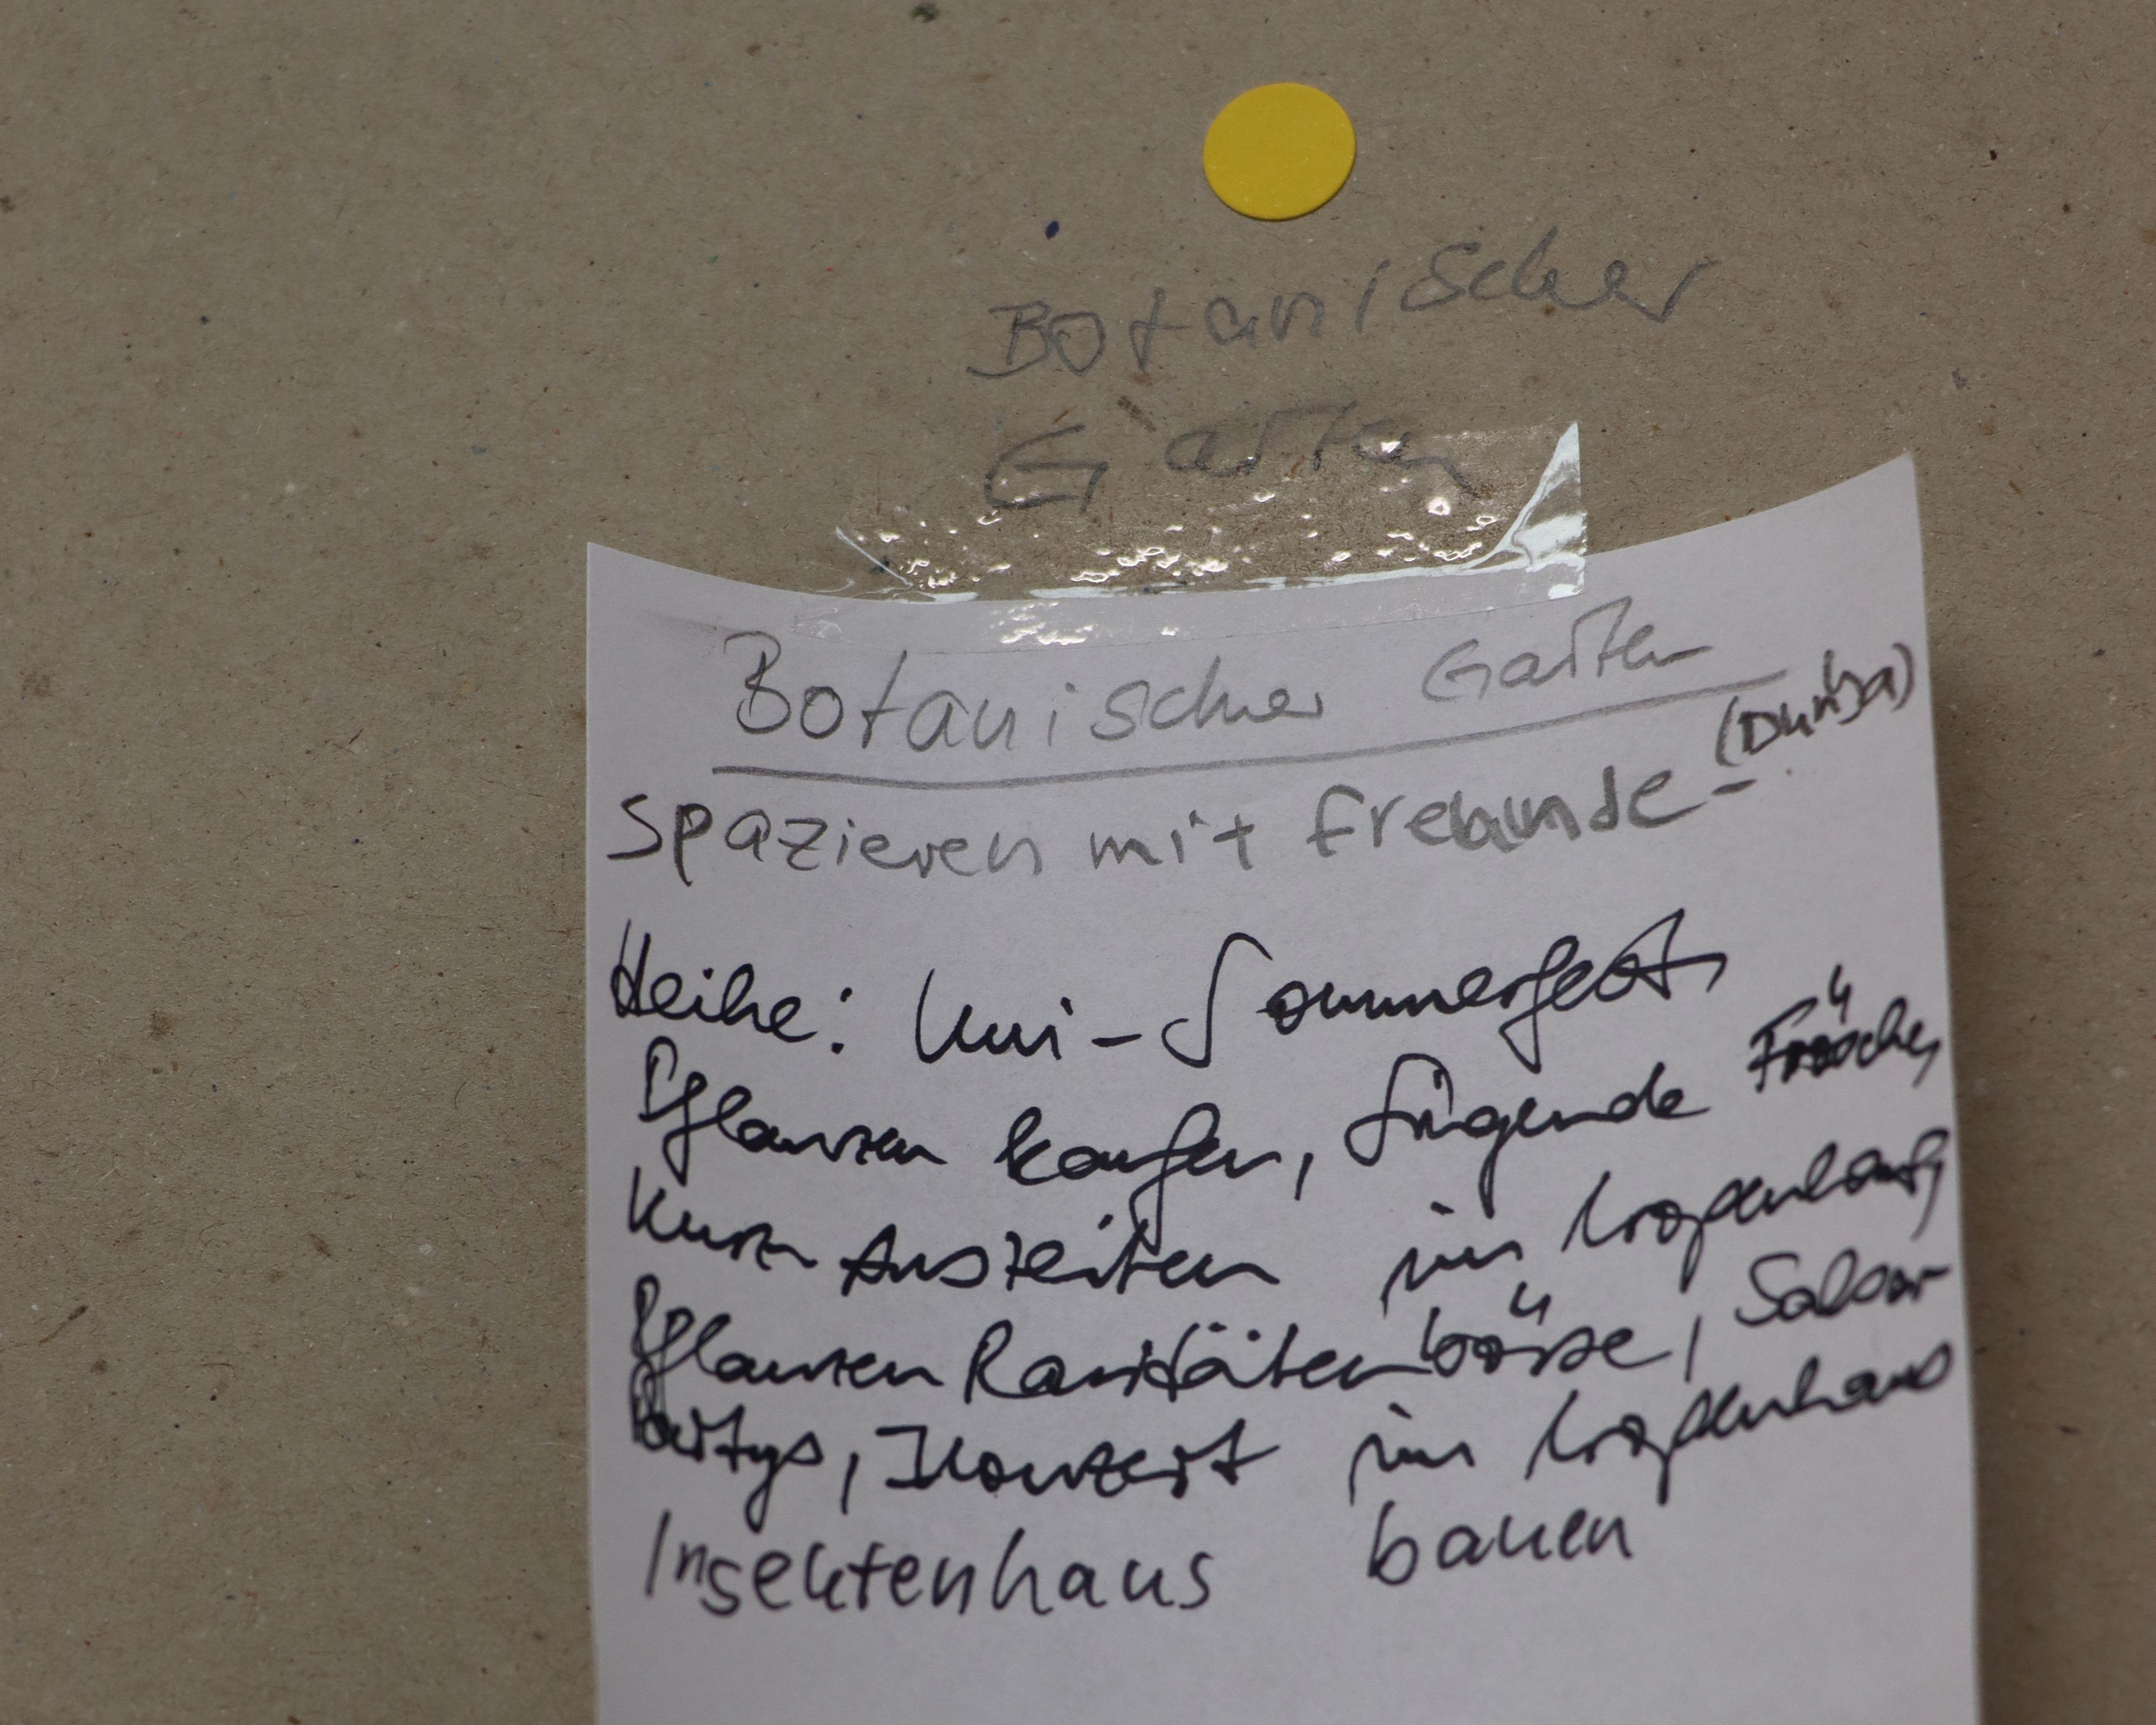 Botanischer
Garten
Botanischer Garten
(Dunja)
spazieren mit freunde -
Heike: Uni-Sommerfest,
Pflanzen kaufen, singende Frösche,
Kurze Auszeiten im Tropenhaus,
Pflanzen Raritätenbörse, Salsa-
Partys, Konzert im Tropenhaus
Insektenhaus bauen